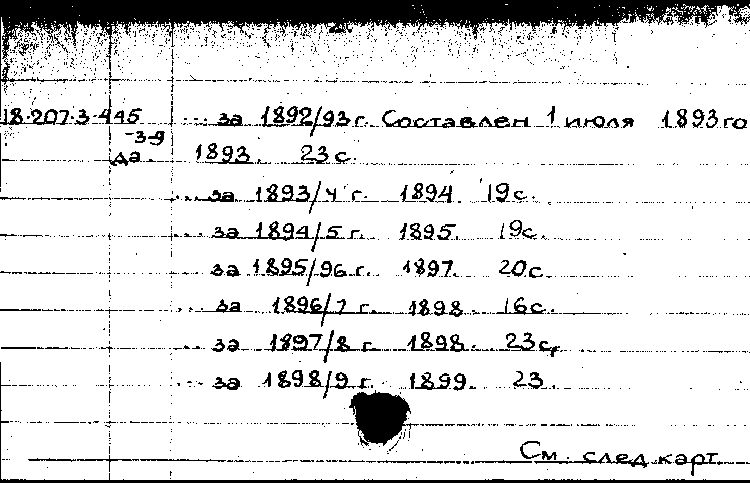 18.207.3.445 ... за 1892/93 г. Составлен 1 июля 1893 го
-3-9
да. 1893. 23 с.
... за 1893/4 г. 1894. 19 с.
... за 1894/5 г. 1895. 19 с.
... за 1895/96 г. 1897. 20 с.
... за 1896/7 г. 1898. 16 с.
... за 1897/8 г. 1898. 23 с.
... за 1898/9 г. 1899. 23.
См. след карт.